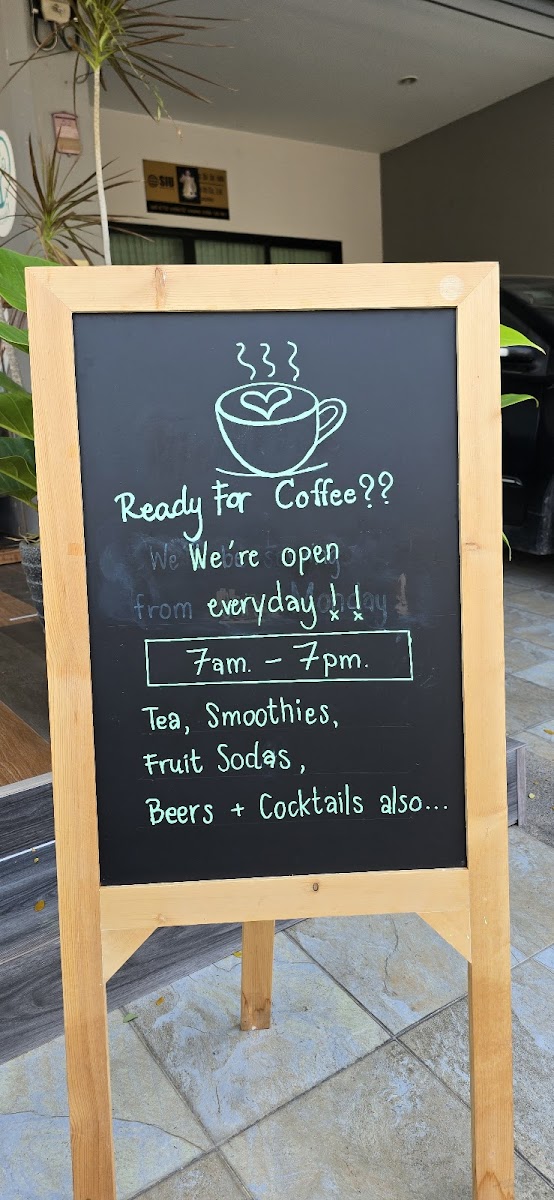 SIU
Ready For Coffee??
We're open
everyday!!
7am. - 7pm.
Tea, Smoothies,
Fruit Sodas,
Beers + Cocktails also...